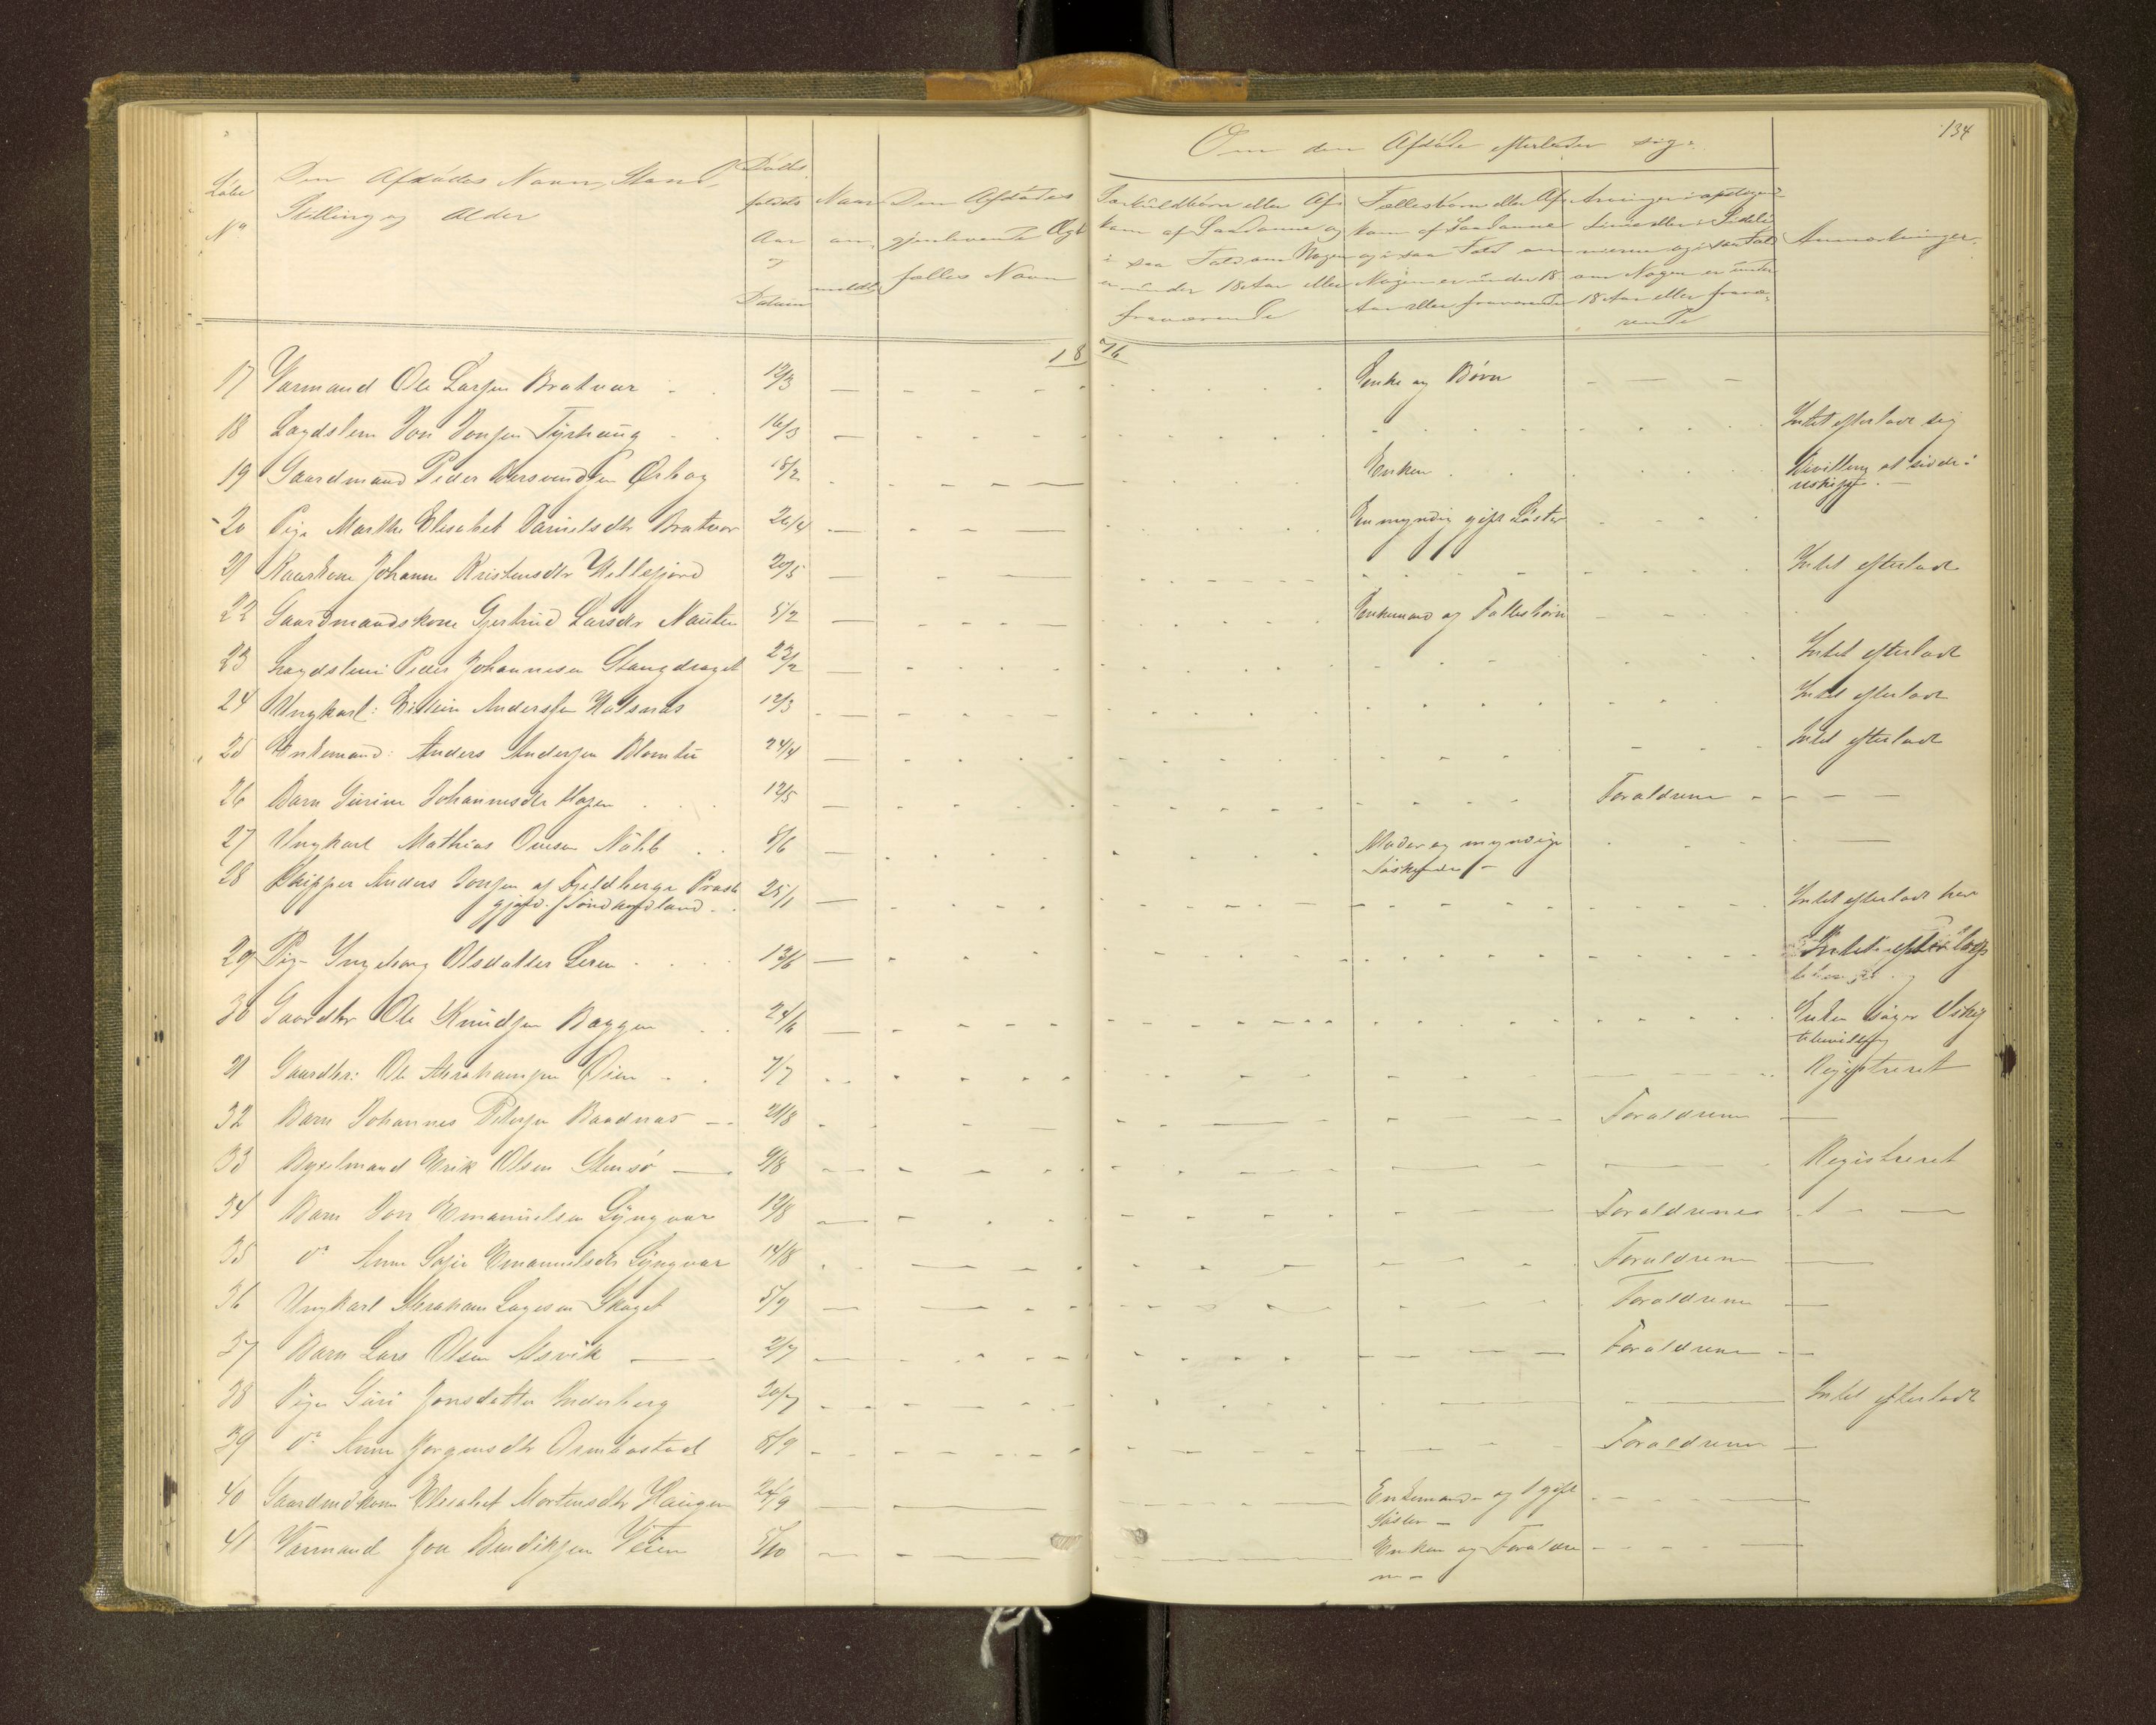 134
Om den Afdøde efterlader sig:
Løbe
No
Den Afdødes Navn, Stand,
Stilling og Alder
Døds
faldets
Aar
og
Datum
Naar
an
meldt
Den Afdødes
gjenlevende Ægte
fælles Navn
Særkuldbørn eller Af
kom af Saadanne og
i saa Fald om Nogen
er under 18 Aar eller
fraværende
Fællesbørn eller Af
kom af Saadanne
og i saa Fald om
Nogen er under 18
Aar eller fraværende
Arvinger i opstigende
Linie eller i Sideli
nierne og i saa Fald
om Nogen er under
18 Aar eller fravæ
rende
Anmærkninger
1876
17 Vaarmand Ole Larsen Bratvær 12/3 Enke og Børn
18 Lægdslem Jon Jonsen Tyrhaug 16/3 Intet efterladt sig
19 Gaardmand Peder Bersvendsen Ørbog 18/2 Enken Bevilling at sidde i
uskiftet
20 Pige Marthe Elisabet Danielsdtr Bratvær 26/4 En myndig gift Søster
21 Kaarkone Johanne Kristensdtr Hellesfjord 20/5 Intet efterladt
22 Gaardmandskone Gjertrud Larsdtr Nausten 5/2 Enkemand og Fællesbørn
23 Lægdslem Peder Johannesen Stangdraget 22/2 Intet efterladt
24 Ungkarl: Eistein Andersen Halsnæs 12/3 Intet efterladt
25 Enkemand: Anders Andersen Blomtu 24/4 Intet efterladt
26 Barn Gurine Johannesdtr Hagen 12/5 Forældrene
27 Ungkarl Mathias Ovesen Nübb 8/6 Moder og myndige
Søskende
28 Skipper Anders Jonsen af Fjeldberge Præste
gjæld. Søndhordland 25/1 Intet efterladt her
29 Pige Ingeborg Olsdatter Leren 13/6 Intet efter
30 Gaardbr Ole Knudsen Bæggen 24/6 Enken søger Uskif
tebevilling
31 Gaardbr: Ole Abrahamsen Øien 7/7 Registreret
32 Barn Johannes Petersen Baadnæs 21/8 Forældrene
33 Bygselmand Erik Olsen Stensø 9/8 Registreret
34 Barn Jon Emanuelsen Lyngvær 12/8 Forældrene
35 do Anne Sofie Emanuelsdtr Lyngvær 14/8 Forældrene
36 Ungkarl Abraham Lagesen Skaget 5/9 Forældrene
37 Barn Lars Olsen Asvik 2/7 Forældrene
38 Pige Guri Jonsdatter Inderberg 20/7 Intet efterladt
39 do Anne Jørgensdtr Ormbostad 8/9 Forældrene
40 Gaardmdkone Elisabet Mortensdtr Haugen 24/9 Enkemand og 1 gift
Søster
41 Vaarmand Joen Bendiksen Veien 5/10 Enken og Forældre
ne